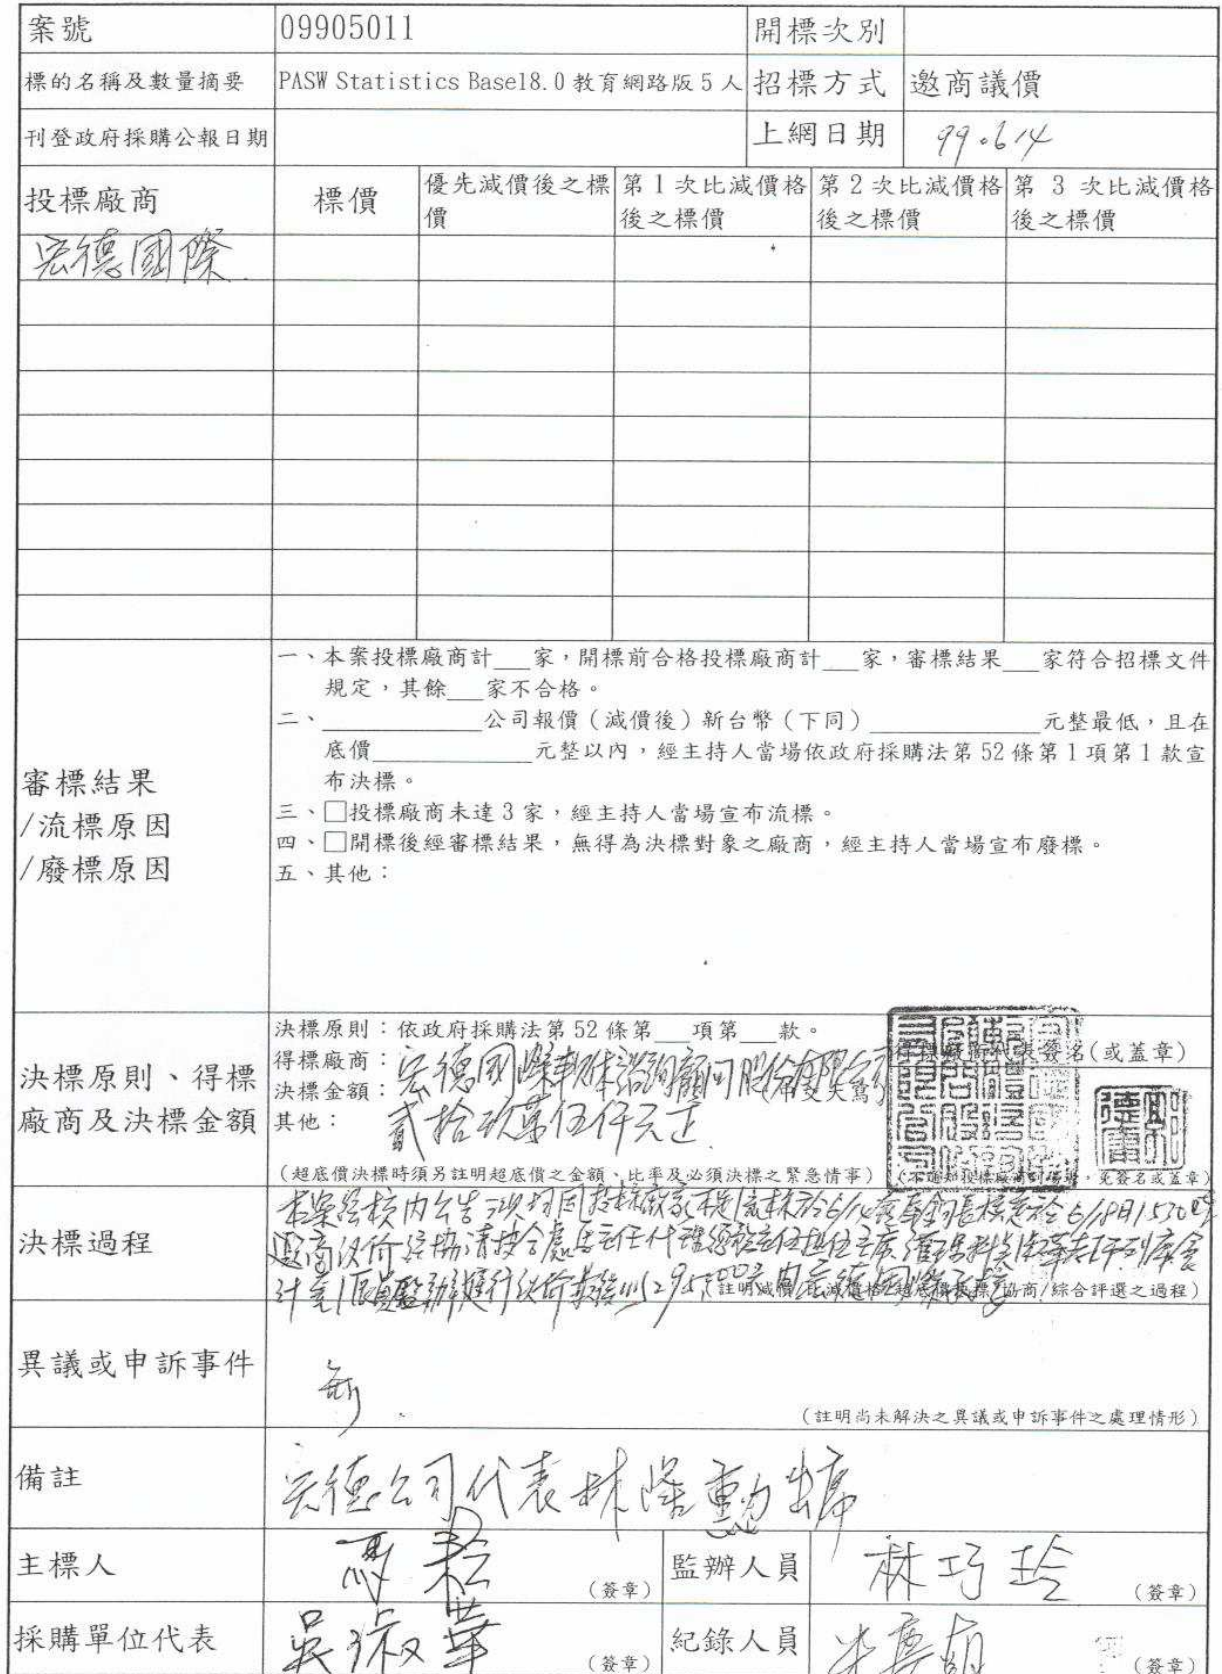 案號 09905011 開標次別
標的名稱及數量摘要 PASW Statistics Base18.0 教育網路版 5 人 招標方式 邀商議價
刊登政府採購公報日期 上網日期 99.6.14
投標廠商 標價 優先減價後之標價 第 1 次比減價格後之標價 第 2 次比減價格後之標價 第 3 次比減價格後之標價
宏德國際
審標結果
/流標原因
/廢標原因
一、本案投標廠商計___家，開標前合格投標廠商計___家，審標結果___家符合招標文件
規定，其餘___家不合格。
二、____________公司報價（減價後）新台幣（下同）____________元整最低，且在
底價____________元整以內，經主持人當場依政府採購法第 52 條第 1 項第 1 款宣
布決標。
三、□投標廠商未達 3 家，經主持人當場宣布流標。
四、□開標後經審標結果，無得為決標對象之廠商，經主持人當場宣布廢標。
五、其他：
決標原則、得標
廠商及決標金額
決標原則：依政府採購法第 52 條第___項第___款。
得標廠商：宏德國際軟体諮詢顧問股份有限公司
得標廠商代表簽名(或蓋章)
決標金額：
其他：貳拾玖萬伍仟元正
（超底價決標時須另註明超底價之金額、比率及必須決標之緊急情事）
免簽名或蓋章）
決標過程
異議或申訴事件
無
（註明尚未解決之異議或申訴事件之處理情形）
備註 宏德公司代表林隆勳出席
主標人 （簽章） 監辦人員 林巧玲 （簽章）
採購單位代表 吳淑華 （簽章） 紀錄人員 （簽章）